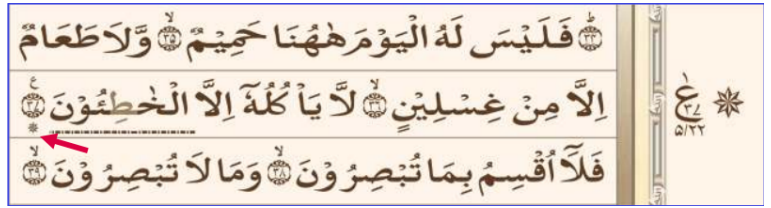 ﴿۳۴﴾ؕ فَلَيْسَ لَهُ الْيَوْمَ هٰهُنَا حَمِيْمٌ ۙ﴿۳۵﴾ وَّلَا طَعَامٌ
اِلَّا مِنْ غِسْلِيْنٍ ۙ﴿۳۶﴾ لَّا يَاْكُلُهٗۤ اِلَّا الْخٰطِئُوْنَ ﴿۳۷﴾ ع
فَلَاۤ اُقْسِمُ بِمَا تُبْصِرُوْنَ ۙ﴿۳۸﴾ وَمَا لَا تُبْصِرُوْنَ ۙ﴿۳۹﴾
ع
۳۷
۵/۲۲